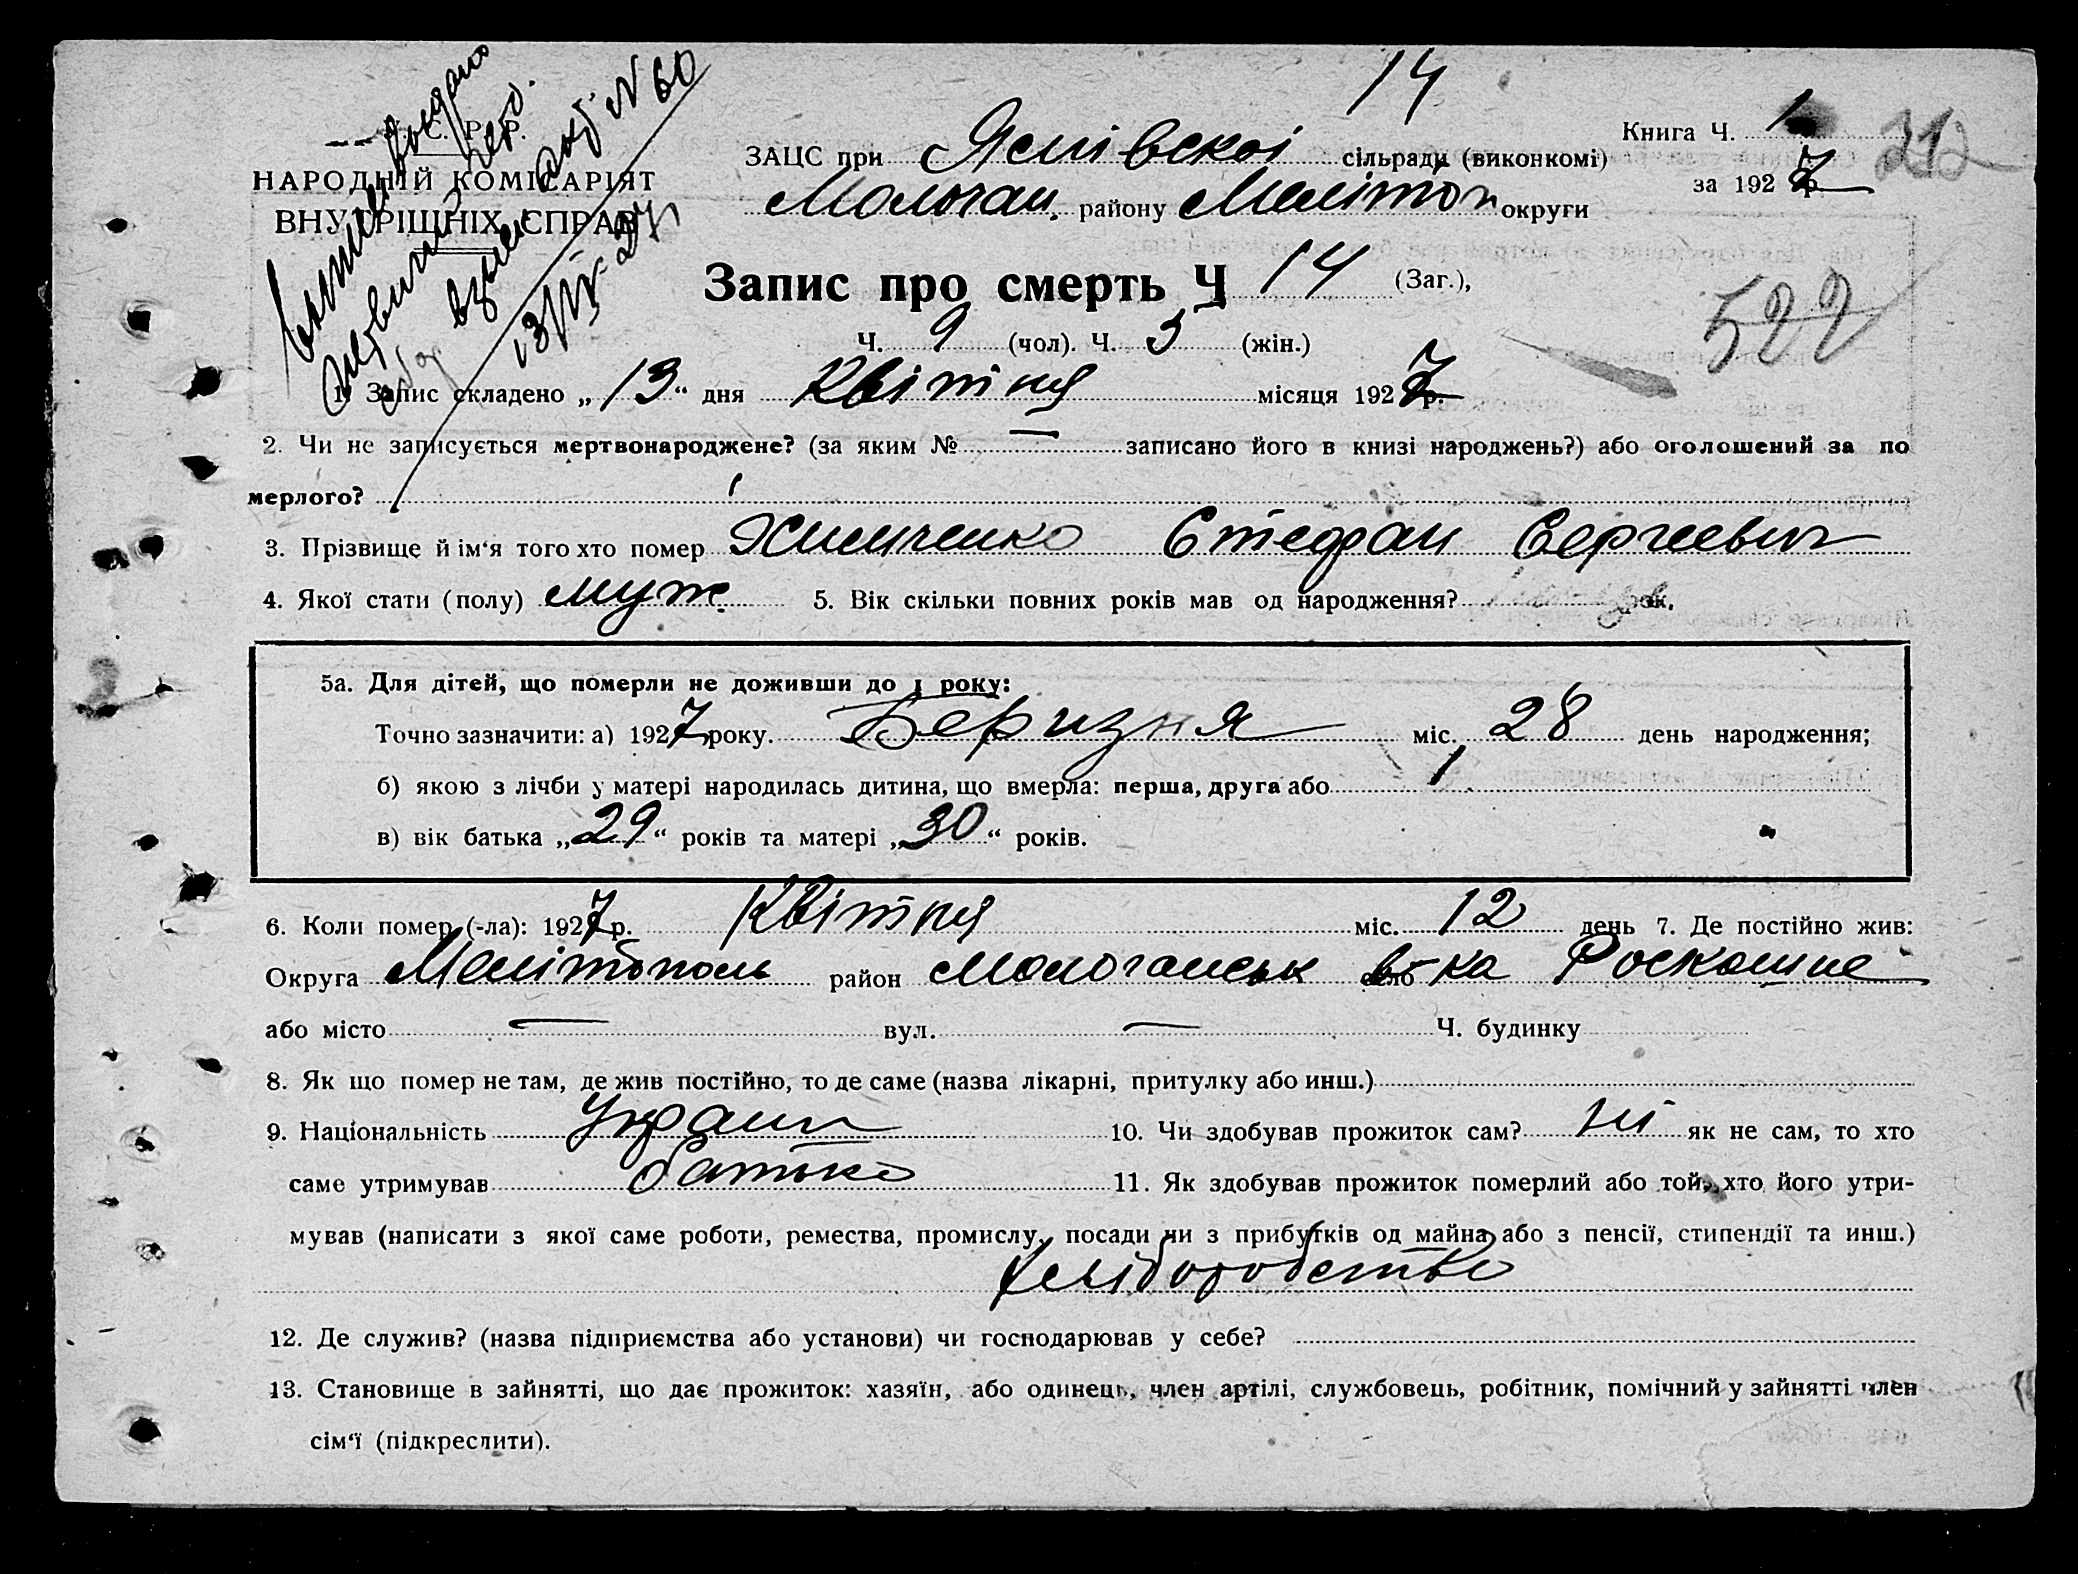 14
У. С. Р. Р.
НАРОДНІЙ КОМІСАРІЯТ
ВНУТРІШНІХ СПРАВ
N 60
ЗАЦС при сільради (виконкомі)
Молочан. району Мелітоп округи
Книга Ч. 1
за 1927 р.
212
Запис про смерть Ч 14 (Заг.),
Ч. 9 (чол). Ч. 5 (жін.)
522
1. Запис складено „13“ дня Квітня місяця 1927 р.
2. Чи не записується мертвонароджене? (за яким № — записано його в книзі народжень?) або оголошений за по
мерлого?
3. Прізвище й ім‘я того хто помер Стефан Сергеевич
4. Якої стати (полу) муж. 5. Вік скільки повних років мав од народження? рок.
5а. Для дітей, що померли не доживши до 1 року:
Точно зазначити: а) 1927 року. Беризня міс. 28 день народження;
б) якою з лічби у матері народилась дитина, що вмерла: перша, друга або 1
в) вік батька „29“ років та матері „30“ років.
6. Коли помер (-ла): 1927 р. Квітня міс. 12 день 7. Де постійно жив:
Округа Мелітополь район Молочанськ село Роскошне
або місто — вул. — Ч. будинку
8. Як що помер не там, де жив постійно, то де саме (назва лікарні, притулку або инш.)
9. Національність Украин 10. Чи здобував прожиток сам? Ні як не сам, то хто
саме утримував батько 11. Як здобував прожиток померлий або той, хто його утри-
мував (написати з якої саме роботи, ремества, промислу, посади чи з прибутків од майна або з пенсії, стипендії та инш.)
хліборобство
12. Де служив? (назва підприємства або установи) чи господарював у себе?
13. Становище в зайнятті, що дає прожиток: хазяїн, або одинець, член артілі, службовець, робітник, помічний у зайнятті член
сім‘ї (підкреслити).